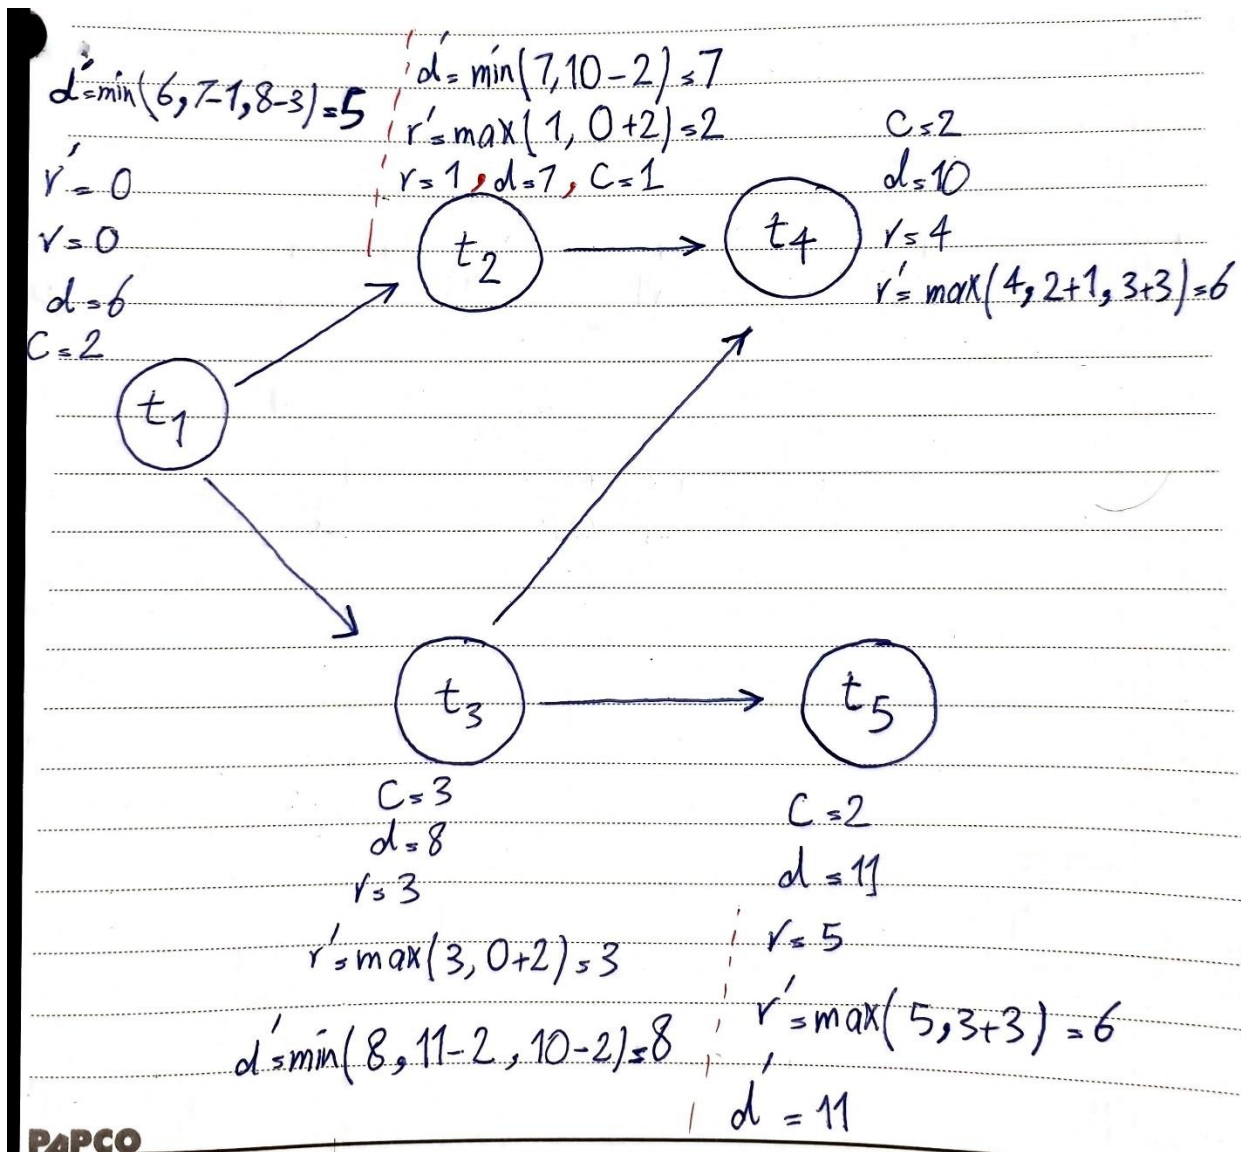 d'=min(6,7-1,8-3)=5
r'=0
r=0
d=6
C=2
t1
d'=min(7,10-2)=7
r'=max(1,0+2)=2
r=1,d=7,C=1
t2
C=2
d=10
r=4
r'=max(4,2+1,3+3)=6
t4
t3
C=3
d=8
r=3
r'=max(3,0+2)=3
d'=min(8,11-2,10-2)=8
t5
C=2
d=11
r=5
r'=max(5,3+3)=6
d'=11
PAPCO